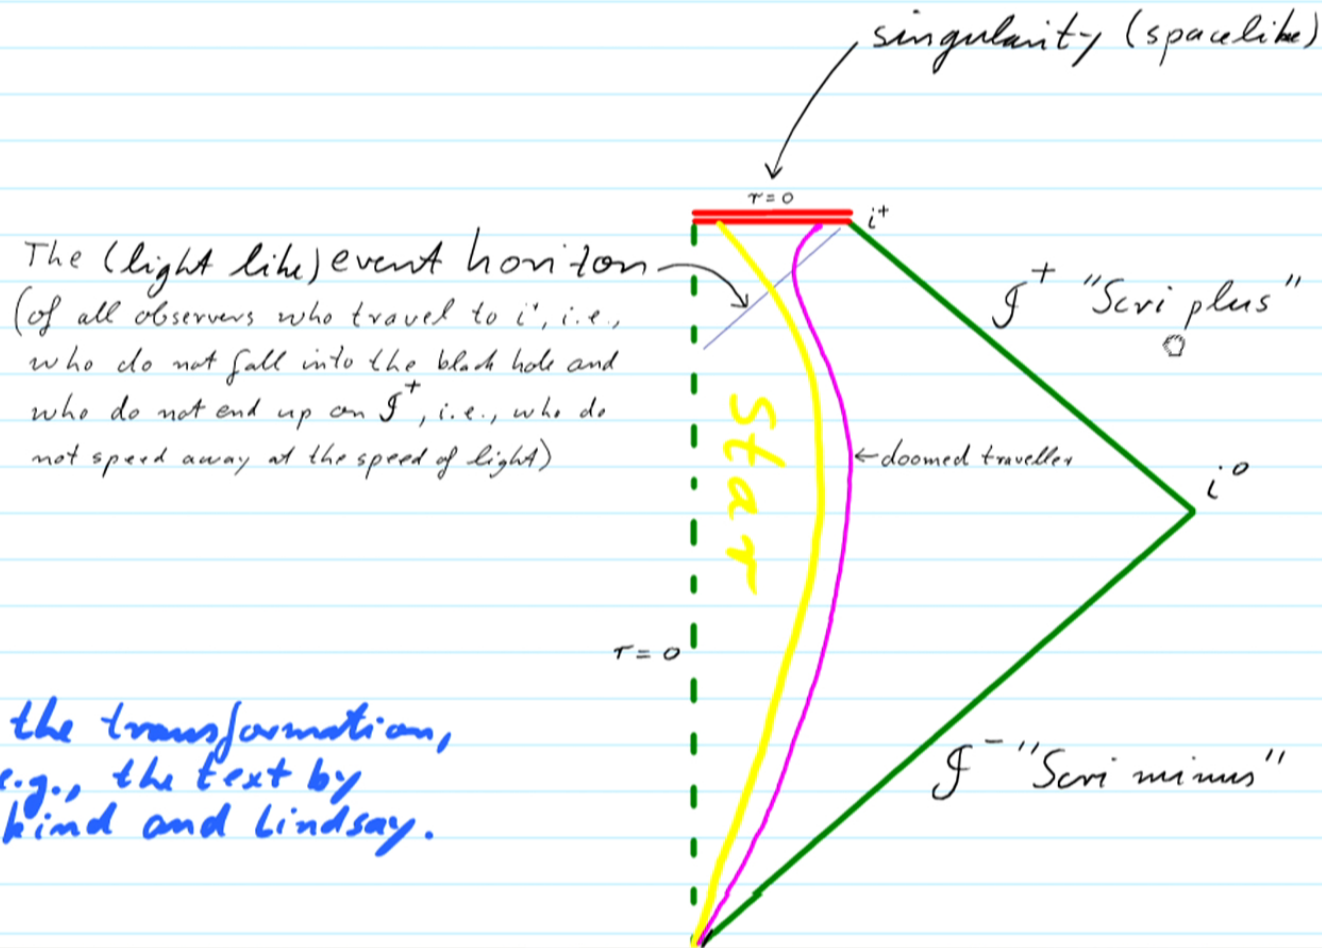 singularity (spacelike)
r=0
i⁺
The (light like) event horizon
(of all observers who travel to i⁺, i.e.,
who do not fall into the black hole and
who do not end up on 𝓘⁺, i.e., who do
not speed away at the speed of light)
𝓘⁺ "Scri plus"
Star
←doomed traveller
i⁰
r=0
the transformation,
e.g., the text by
kind and Lindsay.
𝓘⁻ "Scri minus"